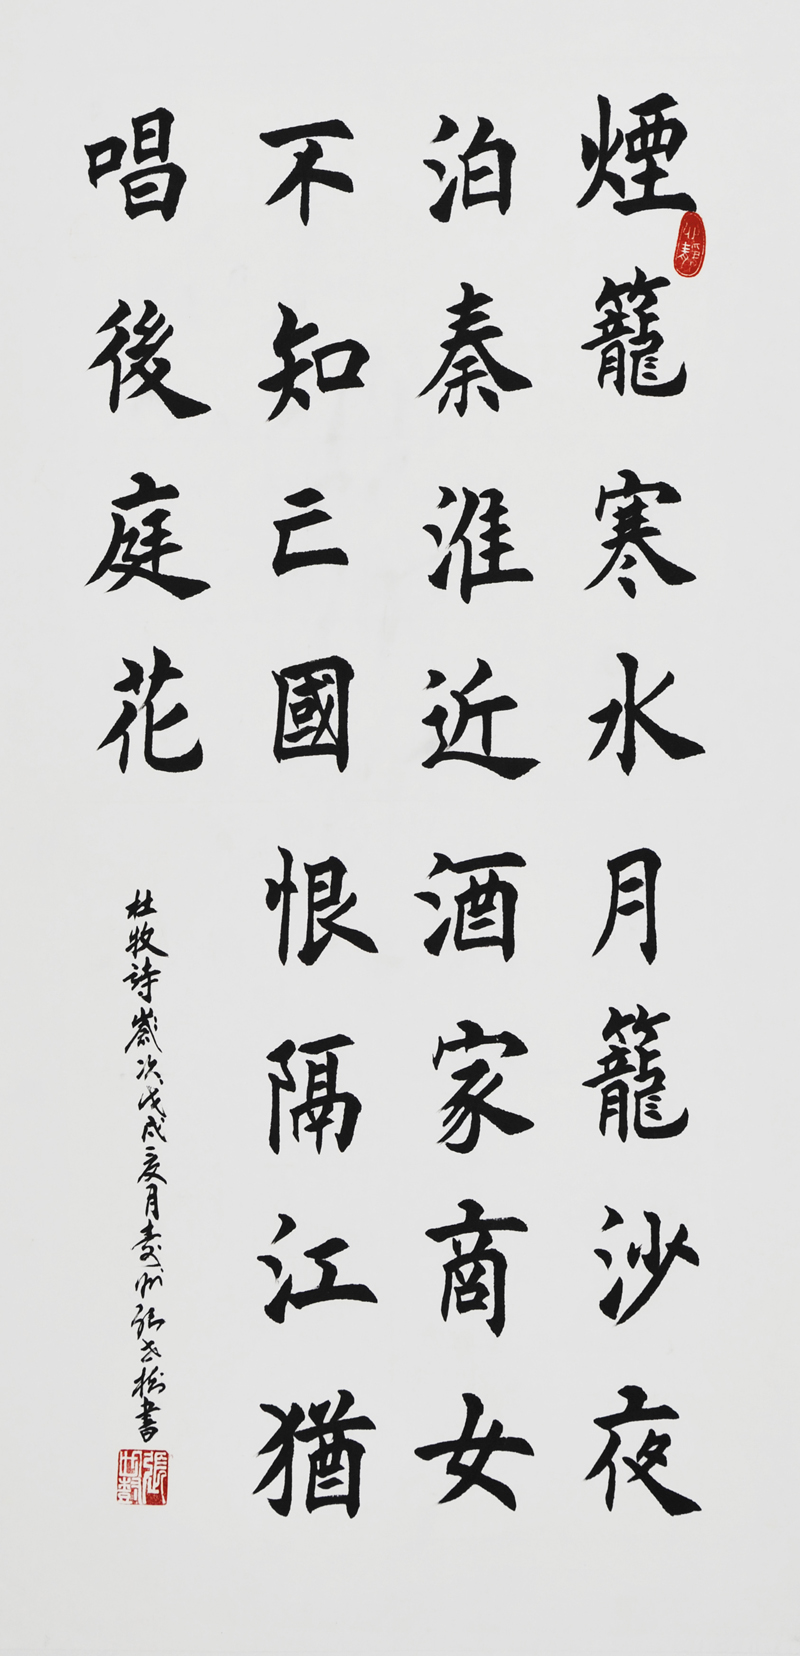 煙籠寒水月籠沙夜
泊秦淮近酒家商女
不知亡國恨隔江猶
唱後庭花
杜牧詩歲次戊戌夏月壽州張世樹書
張世樹